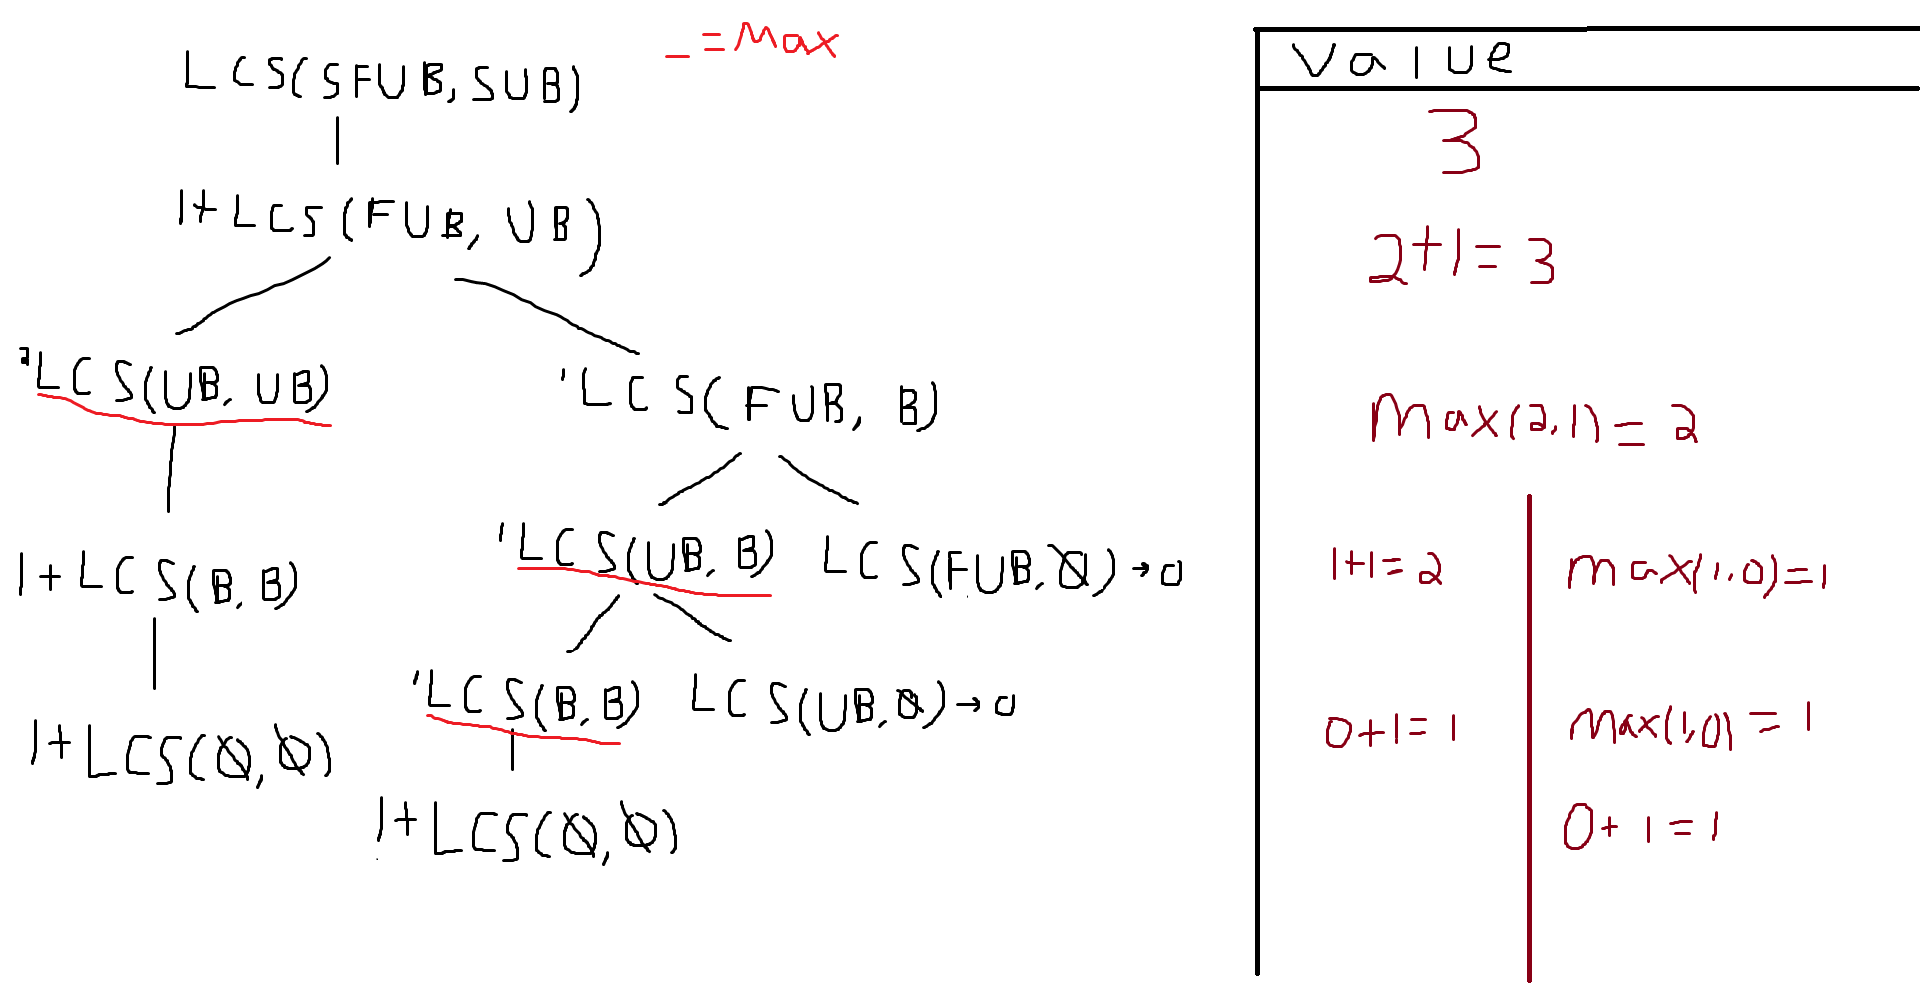 _ = Max
LCS(SFUB, SUB)
1+LCS(FUB, UB)
2LCS(UB, UB)
1LCS(FUB, B)
1LCS(UB, B)
LCS(FUB, Ø) → 0
1+LCS(B, B)
1LCS(B, B)
LCS(UB, Ø) → 0
1+LCS(Ø, Ø)
1+LCS(Ø, Ø)
Value
3
2+1=3
Max(2,1)=2
1+1=2
max(1,0)=1
0+1=1
max(1,0)=1
0+1=1